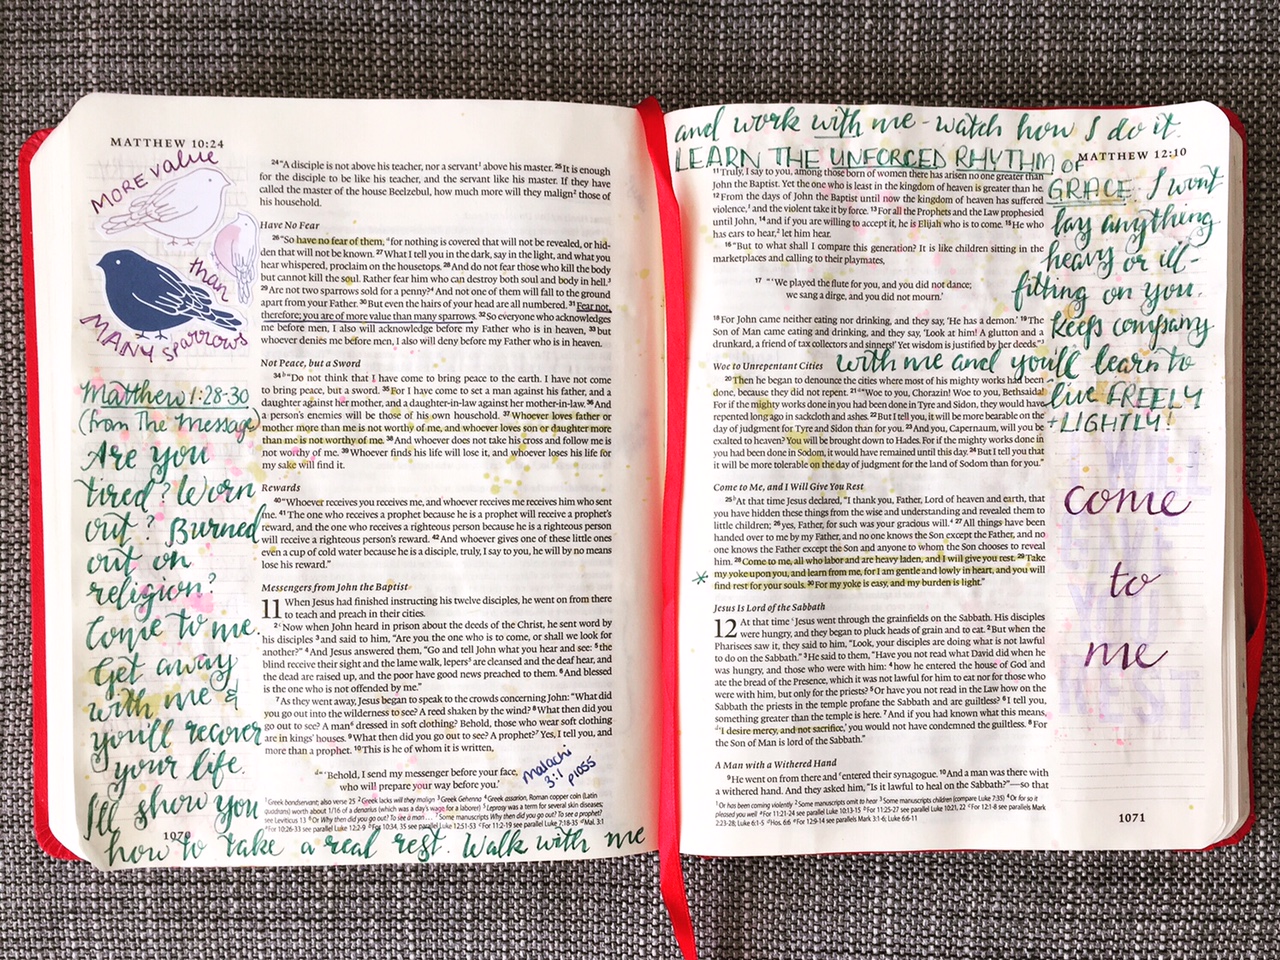 MATTHEW 10:24
MORE value
than
MANY sparrows
Matthew 1:28-30
(from The Message)
Are you
tired? Worn
out? Burned
out on
religion?
Come to me.
Get away
with me &
you'll recover
your life.
I'll show you
how to take a real rest. Walk with me
24 "A disciple is not above his teacher, nor a servant1 above his master. 25 It is enough
for the disciple to be like his teacher, and the servant like his master. If they have
called the master of the house Beelzebul, how much more will they malign2 those of
his household.
Have No Fear
26 "So have no fear of them, for nothing is covered that will not be revealed, or hid-
den that will not be known. 27 What I tell you in the dark, say in the light, and what you
hear whispered, proclaim on the housetops. 28 And do not fear those who kill the body
but cannot kill the soul. Rather fear him who can destroy both soul and body in hell.3
29 Are not two sparrows sold for a penny?4 And not one of them will fall to the ground
apart from your Father. 30 But even the hairs of your head are all numbered. 31 Fear not,
therefore; you are of more value than many sparrows. 32 So everyone who acknowledges
me before men, I also will acknowledge before my Father who is in heaven, 33 but
whoever denies me before men, I also will deny before my Father who is in heaven.
Not Peace, but a Sword
34 "Do not think that I have come to bring peace to the earth. I have not come
to bring peace, but a sword. 35 For I have come to set a man against his father, and a
daughter against her mother, and a daughter-in-law against her mother-in-law. 36 And
a person's enemies will be those of his own household. 37 Whoever loves father or
mother more than me is not worthy of me, and whoever loves son or daughter more
than me is not worthy of me. 38 And whoever does not take his cross and follow me is
not worthy of me. 39 Whoever finds his life will lose it, and whoever loses his life for
my sake will find it.
Rewards
40 "Whoever receives you receives me, and whoever receives me receives him who sent
me. 41 The one who receives a prophet because he is a prophet will receive a prophet's
reward, and the one who receives a righteous person because he is a righteous person
will receive a righteous person's reward. 42 And whoever gives one of these little ones
even a cup of cold water because he is a disciple, truly, I say to you, he will by no means
lose his reward."
Messengers from John the Baptist
11 When Jesus had finished instructing his twelve disciples, he went on from there
to teach and preach in their cities.
2 Now when John heard in prison about the deeds of the Christ, he sent word by
his disciples 3 and said to him, "Are you the one who is to come, or shall we look for
another?" 4 And Jesus answered them, "Go and tell John what you hear and see: 5 the
blind receive their sight and the lame walk, lepers5 are cleansed and the deaf hear, and
the dead are raised up, and the poor have good news preached to them. 6 And blessed
is the one who is not offended by me."
7 As they went away, Jesus began to speak to the crowds concerning John: "What did
you go out into the wilderness to see? A reed shaken by the wind? 8 What then did you
go out to see? A man6 dressed in soft clothing? Behold, those who wear soft clothing
are in kings' houses. 9 What then did you go out to see? A prophet?7 Yes, I tell you, and
more than a prophet. 10 This is he of whom it is written,
"'Behold, I send my messenger before your face,
who will prepare your way before you.'
malachi
3:1 p1055
1 Greek bondservant; also verse 25 2 Greek lacks will they malign 3 Greek Gehenna 4 Greek assarion, Roman copper coin (Latin
quadrans) worth about 1/16 of a denarius (which was a day's wage for a laborer) 5 Leprosy was a term for several skin diseases;
see Leviticus 13 6 Or Why then did you go out? To see a man... 7 Some manuscripts Why then did you go out? To see a prophet?
For 10:26-33 see parallel Luke 12:2-9 10:34, 35 see parallel Luke 12:51-53 For 11:2-19 see parallel Luke 7:18-35 Mal. 3:1
and work with me - watch how I do it.
LEARN THE UNFORCED RHYTHM OF
MATTHEW 12:10
GRACE. I won't
lay anything
heavy or ill-
fitting on you.
Keep company
with me and you'll learn to
live FREELY
+LIGHTLY!
11 Truly, I say to you, among those born of women there has arisen no one greater than
John the Baptist. Yet the one who is least in the kingdom of heaven is greater than he.
12 From the days of John the Baptist until now the kingdom of heaven has suffered
violence,1 and the violent take it by force. 13 For all the Prophets and the Law prophesied
until John, 14 and if you are willing to accept it, he is Elijah who is to come. 15 He who
has ears to hear,2 let him hear.
16 "But to what shall I compare this generation? It is like children sitting in the
marketplaces and calling to their playmates,
17 "'We played the flute for you, and you did not dance;
we sang a dirge, and you did not mourn.'
18 For John came neither eating nor drinking, and they say, 'He has a demon.' 19 The
Son of Man came eating and drinking, and they say, 'Look at him! A glutton and a
drunkard, a friend of tax collectors and sinners!' Yet wisdom is justified by her deeds."3
Woe to Unrepentant Cities
20 Then he began to denounce the cities where most of his mighty works had been
done, because they did not repent. 21 "Woe to you, Chorazin! Woe to you, Bethsaida!
For if the mighty works done in you had been done in Tyre and Sidon, they would have
repented long ago in sackcloth and ashes. 22 But I tell you, it will be more bearable on the
day of judgment for Tyre and Sidon than for you. 23 And you, Capernaum, will you be
exalted to heaven? You will be brought down to Hades. For if the mighty works done in
you had been done in Sodom, it would have remained until this day. 24 But I tell you that
it will be more tolerable on the day of judgment for the land of Sodom than for you."
Come to Me, and I Will Give You Rest
25 At that time Jesus declared, "I thank you, Father, Lord of heaven and earth, that
you have hidden these things from the wise and understanding and revealed them to
little children; 26 yes, Father, for such was your gracious will.4 27 All things have been
handed over to me by my Father, and no one knows the Son except the Father, and no
one knows the Father except the Son and anyone to whom the Son chooses to reveal
him. 28 Come to me, all who labor and are heavy laden, and I will give you rest. 29 Take
my yoke upon you, and learn from me, for I am gentle and lowly in heart, and you will
find rest for your souls. 30 For my yoke is easy, and my burden is light."
Jesus Is Lord of the Sabbath
12 At that time Jesus went through the grainfields on the Sabbath. His disciples
were hungry, and they began to pluck heads of grain and to eat. 2 But when the
Pharisees saw it, they said to him, "Look, your disciples are doing what is not lawful
to do on the Sabbath." 3 He said to them, "Have you not read what David did when he
was hungry, and those who were with him: 4 how he entered the house of God and
ate the bread of the Presence, which it was not lawful for him to eat nor for those who
were with him, but only for the priests? 5 Or have you not read in the Law how on the
Sabbath the priests in the temple profane the Sabbath and are guiltless? 6 I tell you,
something greater than the temple is here. 7 And if you had known what this means,
'I desire mercy, and not sacrifice,' you would not have condemned the guiltless. 8 For
the Son of Man is lord of the Sabbath."
A Man with a Withered Hand
9 He went on from there and entered their synagogue. 10 And a man was there with
a withered hand. And they asked him, "Is it lawful to heal on the Sabbath?"—so that
1 Or has been coming violently 2 Some manuscripts omit to hear 3 Some manuscripts children (compare Luke 7:35) 4 Or for so it
pleased you well For 11:21-24 see parallel Luke 10:13-15 For 11:25-27 see parallel Luke 10:21, 22 For 12:1-8 see parallels Mark
2:23-28; Luke 6:1-5 Hos. 6:6 For 12:9-14 see parallels Mark 3:1-6; Luke 6:6-11
come
to
me
I WILL
GIVE
YOU
REST
1071